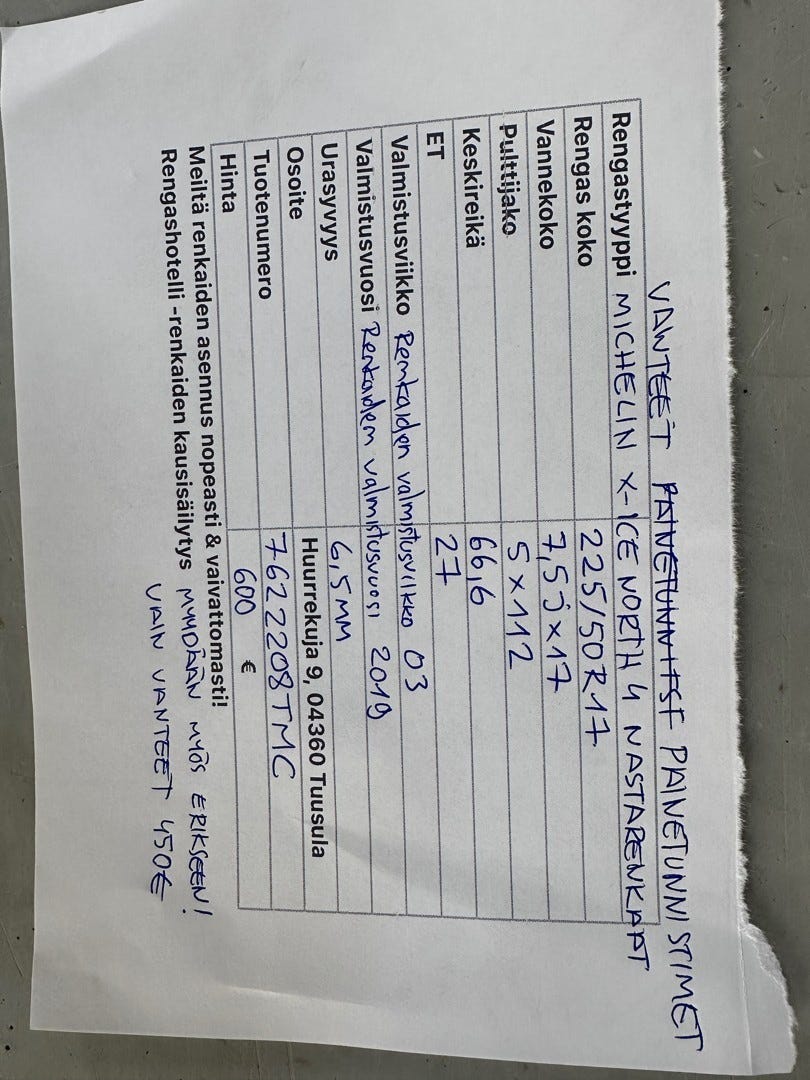 VANTEET PAINETUNNISTIMET
Rengastyyppi MICHELIN X-ICE NORTH 4 NASTARENKAAT
Rengas koko 225/50R17
Vannekoko 7,5J x 17
Pulttijako 5 x 112
Keskireikä 66,6
ET 27
Valmistusviikko Renkaiden valmistusviikko 03
Valmistusvuosi Renkaiden valmistusvuosi 2019
Urasyvyys 6,5MM
Osoite Huurrekuja 9, 04360 Tuusula
Tuotenumero 7622208TMC
Hinta 600 €
Meiltä renkaiden asennus nopeasti & vaivattomasti!
Rengashotelli -renkaiden kausisäilytys
MYYDÄÄN MYÖS ERIKSEEN!
VAIN VANTEET 450€